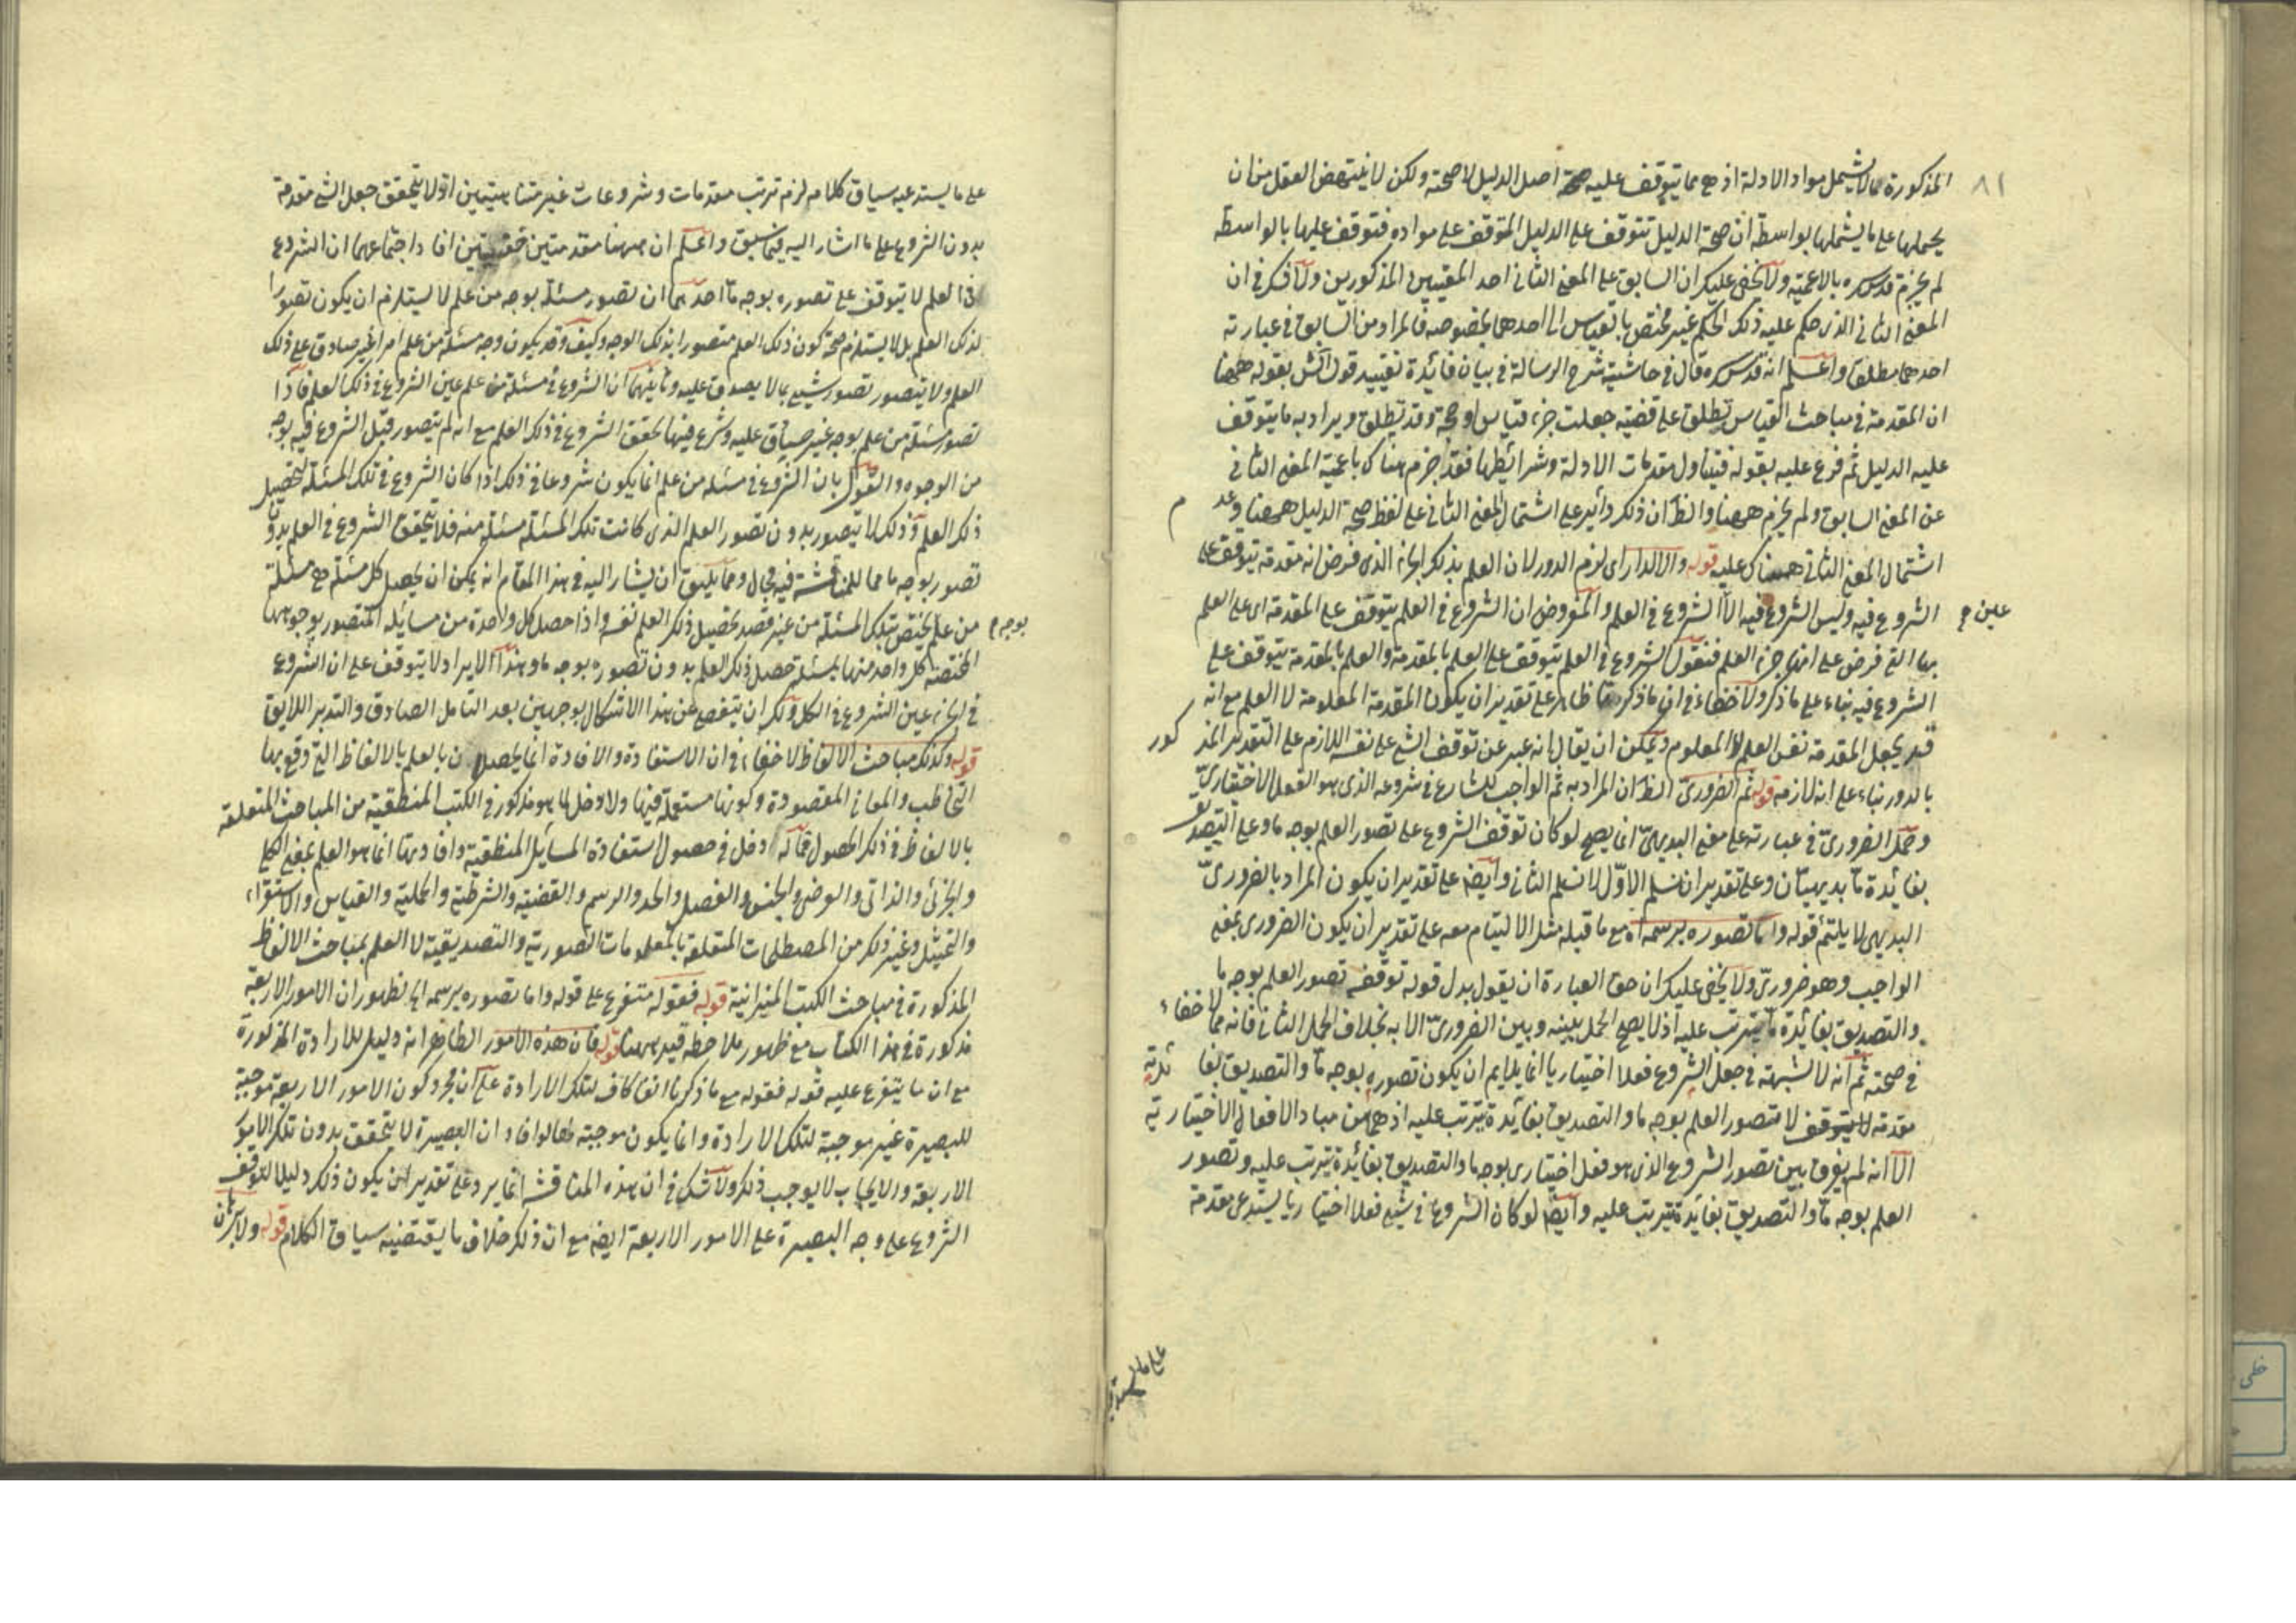 ٨١
المذكورة مما لا يشمل مواد الادلة اذ هى مما يتوقف عليه صحة اصل الدليل لا صحته ولكن لا ينتهض العقل من ان
يحملها على ما يشملها بواسطة ان صحة الدليل تتوقف على الدليل المتوقف على مواده فتوقف عليها بالواسطة
لم يجزم قدس سره بالاعمية ولا يخفى عليك ان السابق على المعنى الثانى احد المعنيين المذكورين ولا فكر فى ان
المعنى الثانى الذى حكم عليه ذلك الحكم غير مختص بالقياس الى احدهما بخصوصه فالمراد من السابق فى عبارته
احدهما مطلقا واعلم انه قدس سره قال فى حاشية شرح الرسالة فى بيان فائدة تقييد قول الش بقوله ههنا
ان المقدمة فى مباحث القياس تطلق على قضية جعلت جزء قياس او حجة وقد تطلق ويراد به ما يتوقف
عليه الدليل ثم فرع عليه بقوله فيتناول مقدمات الادلة وشرائطها فقد جزم هناك باعمية المعنى الثانى
عن المعنى السابق ولم يجزم ههنا والظ ان ذلك دائر على اشتمال المعنى الثانى على لفظ صحة الدليل ههنا وعدم
اشتمال المعنى الثانى هناك عليه قوله والا لدار اى لزم الدور لان العلم بذلك الجزء الذى فرض انه مقدمة يتوقف على
الشروع فيه وليس الشروع فيه الا الشروع فى العلم والمفروض ان الشروع فى العلم يتوقف على المقدمة اى على العلم
عين ح
بها التى فرض على انها جزء العلم فنقول الشروع فى العلم يتوقف على العلم بالمقدمة والعلم بالمقدمة يتوقف على
الشروع فيه بناء على ما ذكر ولا خفاء فى ان ما ذكر ظاهر على تقدير ان يكون المقدمة المعلومة لا العلم مع انه
قد يجعل المقدمة نفس العلم لا المعلوم ويمكن ان يقال انه عبر عن توقف الشئ على نفسه اللازم على التقدير المذكور
بالدور بناء على انه لازمه قوله ثم الضرورى الظ ان المراد به ثم الواجب للشارع فى شروعه الذى هو الفعل الاختيارى
وحمل الضرورى فى عبارته على معنى البديهى انما يصح لو كان توقف الشروع على تصور العلم بوجه ما وعلى التصديق
بفائدة ما بديهيتان وعلى تقدير ان نسلم الاول لا نسلم الثانى وايضا على تقدير ان يكون المراد بالضرورى
البديهى لا يلتئم قوله واما تصوره برسمه آه مع ما قبله مثل الالتيام معه على تقدير ان يكون الضرورى بمعنى
الواجب وهو ضرورى ولا يخفى عليك ان حق العبارة ان يقول بدل قوله توقفه تصور العلم بوجه ما
والتصديق بفائدة ما يترتب عليه اذ لا يصح الحمل بينه وبين الضرورى الا به بخلاف الحمل الثانى فانه مما لا خفاء
فى صحته ثم انه لا شبهة فى جعل الشروع فعلا اختياريا انما يلايم ان يكون تصوره بوجه ما والتصديق بفائدته
مقدمة لا تصور العلم بوجه ما والتصديق بفائدة يترتب عليه اذ هما من مباد الافعال الاختيارية
الا انه لم يفرق بين تصور الشروع الذى هو فعل اختيارى بوجه ما والتصديق بفائدة يترتب عليه وتصور
العلم بوجه ما والتصديق بفائدة يترتب عليه وايضا لو كان الشروع فى شئ فعلا اختياريا يستدعى مقدمة
على ما يستدعيه
على ما يستدعيه سياق كلامه لزم ترتب مقدمات وشروعات غير متناهيتين اذ لا يتحقق جعل الشئ مقدمة
بدون الشروع على ما اشار اليه فيما سبق واعلم ان ههنا مقدمتين افاد اجتماعهما ان الشروع
فى العلم لا يتوقف على تصوره بوجه ما احدهما ان تصور مسئلة بوجه من علم لا يستلزم ان يكون تصورا
لذلك العلم بل لا يستلزم صحة كون ذلك العلم متصورا بذلك الوجه وكيف وقد يكون وجه مسئلة من علم امرا غير صادق على ذلك
العلم ولا يتصور تصور شئ بما لا يصدق عليه وثانيهما ان الشروع فى مسئلة من علم عين الشروع فى ذلك العلم فاذا
تصور مسئلة من علم بوجه غير صادق عليه وشرع فيها تحقق الشروع فى ذلك العلم مع انه لم يتصور قبل الشروع فيه بوجه
من الوجوه والقول بان الشروع فى مسئلة من علم انما يكون شروعا فى ذلك اذا كان الشروع فى تلك المسئلة لتحصيل
ذلك العلم وذلك لا يتصور بدون تصور العلم الذى كانت تلك المسئلة مسئلة منه فلا يتحقق الشروع فى العلم بدون
تصوره بوجه ما مما للمناقشة فيه مجال ومما يليق ان يشار اليه فى هذا المقام انه يمكن ان يحصل كل مسئلة هى مسئلة
من علم يختص بتلك المسئلة من غير قصد تحصيل ذلك العلم نفسه واذا حصل كل واحدة من مسايله المتصور بوجوهها
بوجه ح
المختصة كل واحد منها بمسئلة حصل ذلك العلم بدون تصوره بوجه ما وهذا الايراد لا يتوقف على ان الشروع
فى الجزء عين الشروع فى الكل ولك ان يتفصى عن هذا الاشكال بوجهين بعد التامل الصادق والتدبر اللايق
قوله وكذلك مباحث الالفاظ لا خفاء فى ان الاستفادة والافادة انما يحصلان بالعلم بالالفاظ التى وقع بها
التخاطب والمعانى المقصودة وكونها مستعملة فيها ولا دخل لما هو مذكور فى الكتب المنطقية من المباحث المتعلقة
بالالفاظ فى ذلك الحصول فما له دخل فى حصول استفادة المسايل المنطقية وافادتها انما هو العلم بمعنى الكلى
والجزئى والذاتى والعرضى والجنس والفصل والحد والرسم والقضية والشرطية والحملية والقياس والاستقراء
والتمثيل وغير ذلك من المصطلحات المتعلقة بالمعلومات التصورية والتصديقية لا العلم بمباحث الالفاظ
المذكورة فى مباحث الكتب الميزانية قوله فقوله متفرع على قوله واما تصوره برسمه الى لظهور ان الامور الاربعة
مذكورة فى هذا الكتاب مع ظهور ملاحظة قيد ههنا قوله فان هذه الامور الظاهر انه دليل للارادة المذكورة
مع ان ما يتفرع عليه قوله فقوله مع ما ذكرنا انفا كاف لتلك الارادة على ان مجرد كون الامور الاربعة موجبة
للبصيرة غير موجبة لتلك الارادة وانما يكون موجبة لها لو افاد ان البصيرة لا يتحقق بدون تلك الامور
الاربعة والايجاب لا يوجب ذلك ولا شك فى ان هذه المناقشة انما يرد على تقدير ان يكون ذلك دليلا لتوقف
الشروع على وجه البصيرة على الامور الاربعة ايضا مع ان ذلك خلاف ما يقتضيه سياق الكلام قوله